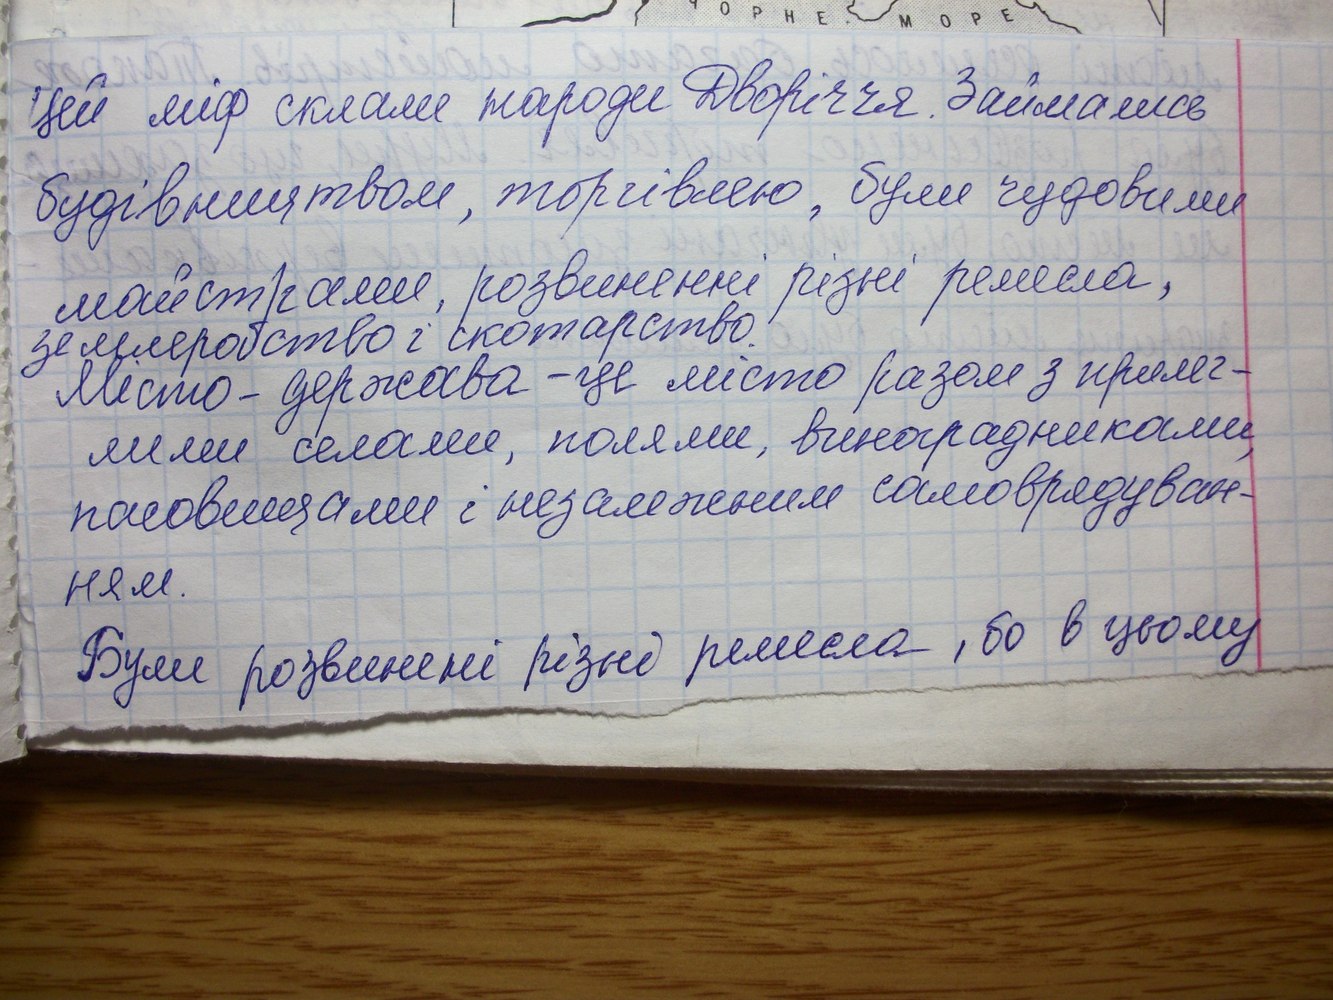 ЧОРНЕ МОРЕ
Цей міф склали народи Дворіччя. Займались
будівництвом, торгівлею, були чудовими
майстрами, розвиненні різні ремесла,
землеробство і скотарство.
Місто - держава - це місто разом з прилег-
лими селами, полями, виноградниками,
пасовищами і незалежним самоврядуван-
ням.
Були розвинені різні ремесла, бо в цьому